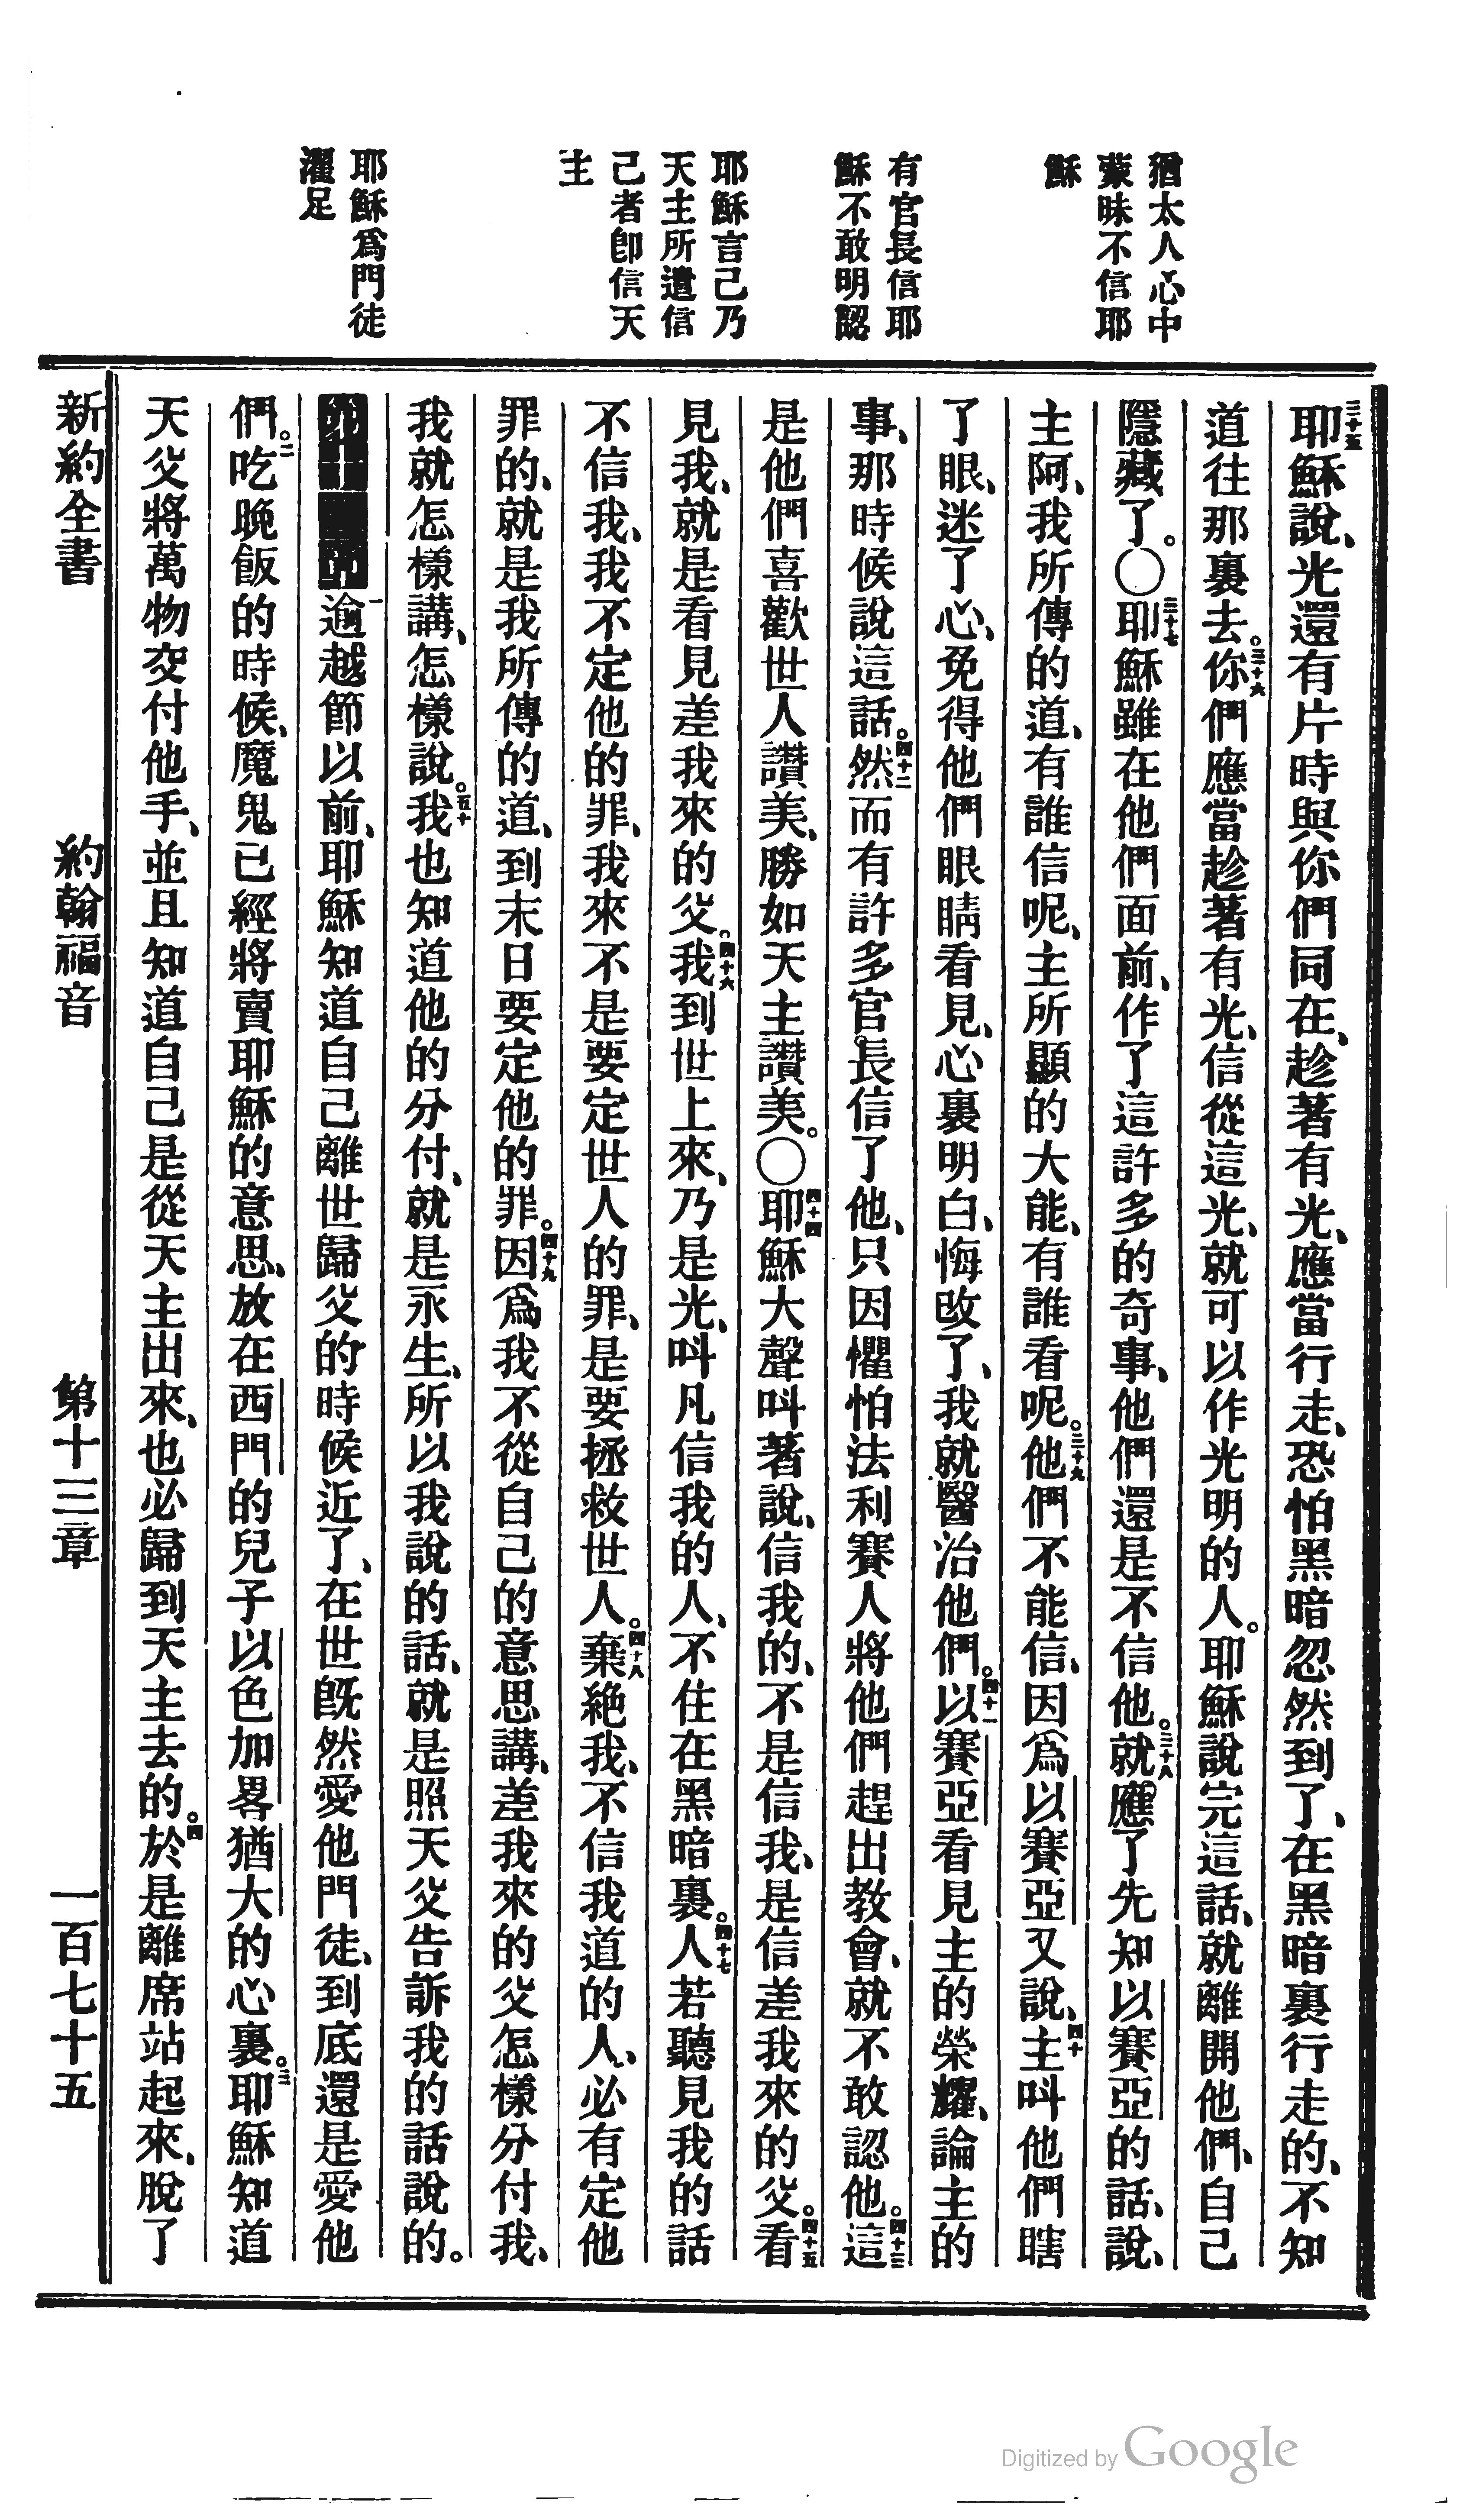 猶太人心中
蒙昧不信耶
穌
有官長信耶
穌不敢明認
耶穌言己乃
天主所遣信
己者卽信天
主
耶穌爲門徒
濯足
三十五耶穌說、光還有片時與你們同在、趁著有光、應當行走、恐怕黑暗忽然到了、在黑暗裏行走的、不知
道往那裏去。三十六你們應當趁著有光、信從這光、就可以作光明的人。耶穌說完這話、就離開他們、自己
隱藏了。〇三十七耶穌雖在他們面前、作了這許多的奇事、他們還是不信他。三十八就應了先知以賽亞的話、說、
主阿、我所傳的道、有誰信呢、主所顯的大能、有誰看呢。三十九他們不能信、因爲以賽亞又說、四十主呌他們瞎
了眼、迷了心、免得他們眼睛看見、心裏明白、悔改了、我就醫治他們。四十一以賽亞看見主的榮耀、論主的
事、那時候說這話。四十二然而有許多官長信了他、只因懼怕法利賽人將他們趕出教會、就不敢認他。四十三這
是他們喜歡世人讚美、勝如天主讚美。〇四十四耶穌大聲呌著說、信我的、不是信我、是信差我來的父。四十五看
見我、就是看見差我來的父。四十六我到世上來、乃是光、呌凡信我的人、不住在黑暗裏。四十七人若聽見我的話
不信我、我不定他的罪、我來不是要定世人的罪、是要拯救世人。四十八棄絕我、不信我道的人、必有定他
罪的、就是我所傳的道、到末日要定他的罪。四十九因爲我不從自己的意思講、差我來的父怎樣分付我、
我就怎樣講、怎樣說。五十我也知道他的分付、就是永生、所以我說的話、就是照天父告訴我的話說的。
一逾越節以前、耶穌知道自己離世歸父的時候近了、在世旣然愛他門徒、到底還是愛他
們。二吃晚飯的時候、魔鬼已經將賣耶穌的意思、放在西門的兒子以色加畧猶大的心裏。三耶穌知道
天父將萬物交付他手、並且知道自己是從天主出來、也必歸到天主去的。四於是離席站起來、脫了
新約全書 約翰福音 第十三章 一百七十五
Digitized by Google